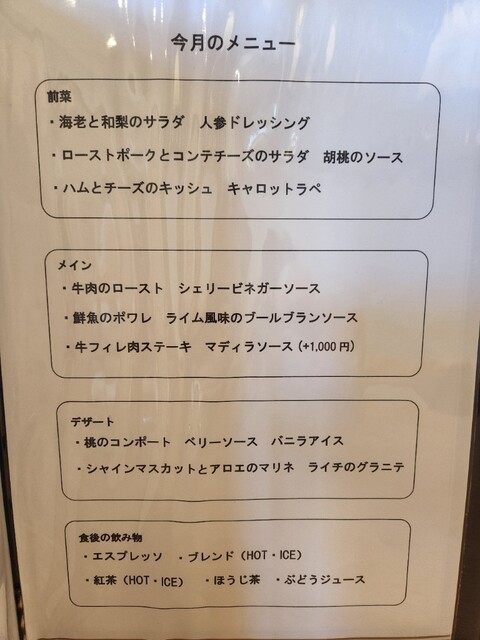 今月のメニュー
前菜
・海老と和梨のサラダ　人参ドレッシング
・ローストポークとコンテチーズのサラダ　胡桃のソース
・ハムとチーズのキッシュ　キャロットラペ
メイン
・牛肉のロースト　シェリービネガーソース
・鮮魚のポワレ　ライム風味のブールブランソース
・牛フィレ肉ステーキ　マディラソース (+1,000円)
デザート
・桃のコンポート　ベリーソース　バニラアイス
・シャインマスカットとアロエのマリネ　ライチのグラニテ
食後の飲み物
・エスプレッソ　・ブレンド（HOT・ICE）
・紅茶（HOT・ICE）　・ほうじ茶　・ぶどうジュース